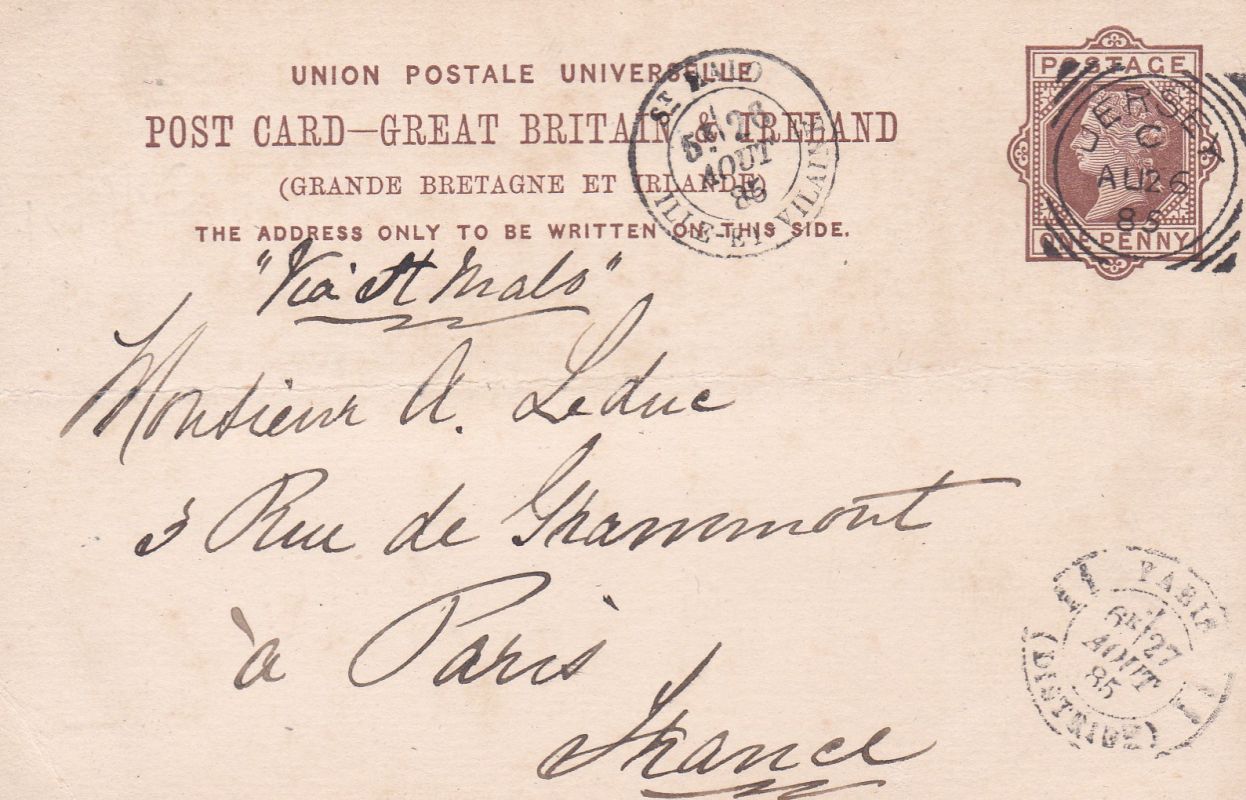 UNION POSTALE UNIVERSELLE
POST CARD—GREAT BRITAIN & IRELAND
(GRANDE BRETAGNE ET IRLANDE)
THE ADDRESS ONLY TO BE WRITTEN ON THIS SIDE.
POSTAGE
ONE PENNY
JERSEY
C
AU 26
85
ST MALO
5E 26
AOUT
85
ILLE-ET-VILAINE
"Via St Malo"
Monsieur A. Leduc
3 Rue de Grammont
à Paris
France
PARIS
6E 27
AOUT
85
(DISTRIBON)